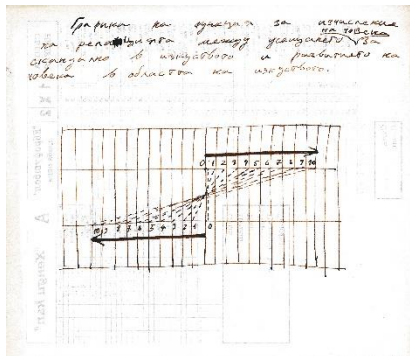 Графика на функции за изчисление
на човека
на релацията между усещането за
скандално в изкуството и развитието на
човека в областта на изкуството.
0 1 2 3 4 5 6 7 8 9 10
10 9 8 7 6 5 4 3 2 1 0